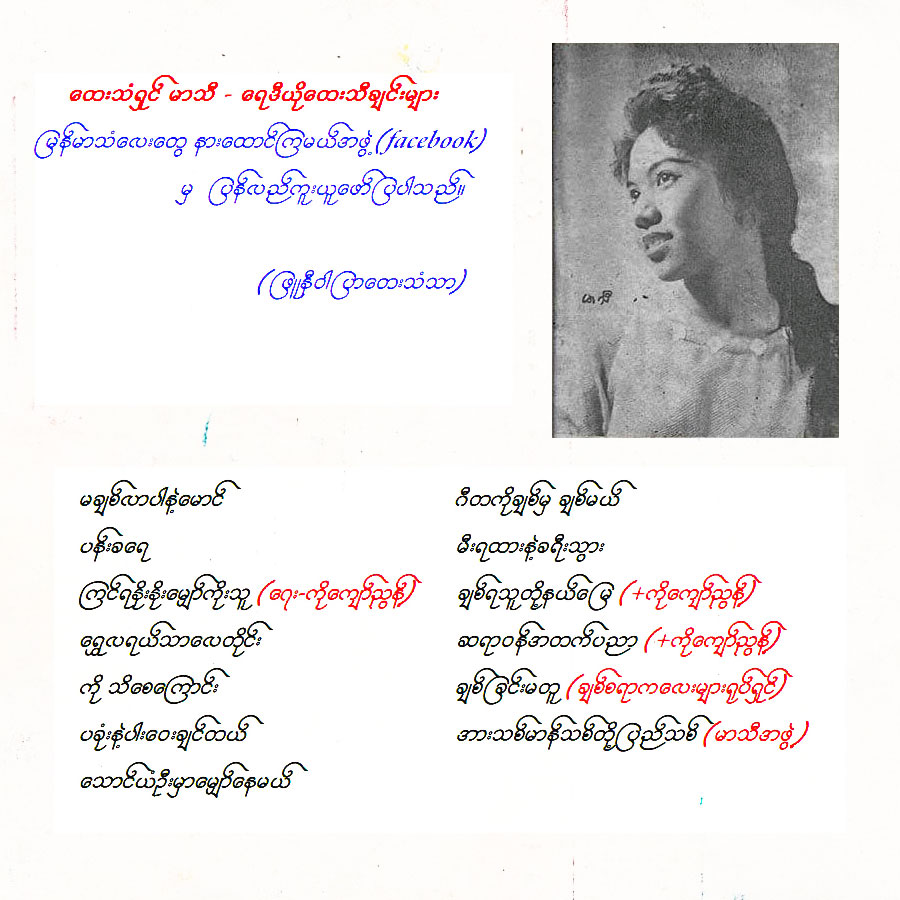 တေးသံရှင် မာသီ - ရေဒီယိုတေးသီချင်းများ
မြန်မာသံလေးတွေ နားထောင်ကြမယ်အဖွဲ့ (facebook)
မှ ပြန်လည်ကူးယူဖော်ပြပါသည်။
(ဖြူနီဝါပြာတေးသံသာ)
မာသီ
မချစ်လာပါနဲ့မောင်
ပန်းခရေ
ကြင်ရနိုးနိုးမျှော်ကိုးသူ (ရေး-ကိုကျော်ညွန့်)
ရွှေလရယ်သာလေတိုင်း
ကို သိစေကြောင်း
ပခုံးနဲ့ပါးဝေးချင်တယ်
သောင်ယံဦးမှာမျှော်နေမယ်
ဂီတကိုချစ်မှ ချစ်မယ်
မီးရထားနဲ့ခရီးသွား
ချစ်ရသူတို့နယ်မြေ (+ကိုကျော်ညွန့်)
ဆရာဝန်အတက်ပညာ (+ကိုကျော်ညွန့်)
ချစ်ခြင်းမတူ (ချစ်စရာကလေးများရုပ်ရှင်)
အားသစ်မာန်သစ်တို့ပြည်သစ် (မာသီအဖွဲ့)